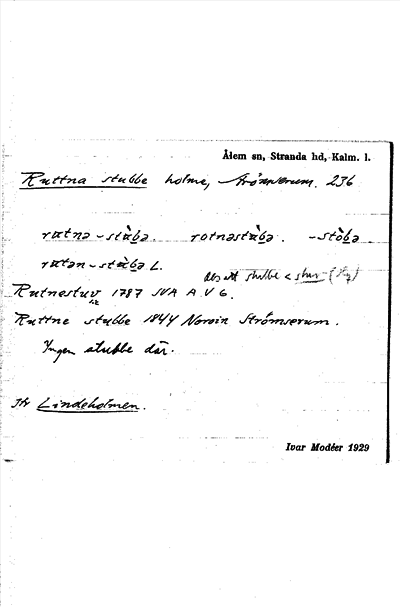 Ålem sn, Stranda hd, Kalm. l.
Ruttna stubbe holme, Strömserum. 236
rutnə-stùbə. rotnəstùbə. -stòbə
rutən-stùbə L.
stubbe <
Rutnestuv 1787 SVA A V 6.
Ruttne stubbe 1844 Norvin Strömserum.
Ingen stubbe där.
Jfr Lindeholmen.
Ivar Modéer 1929